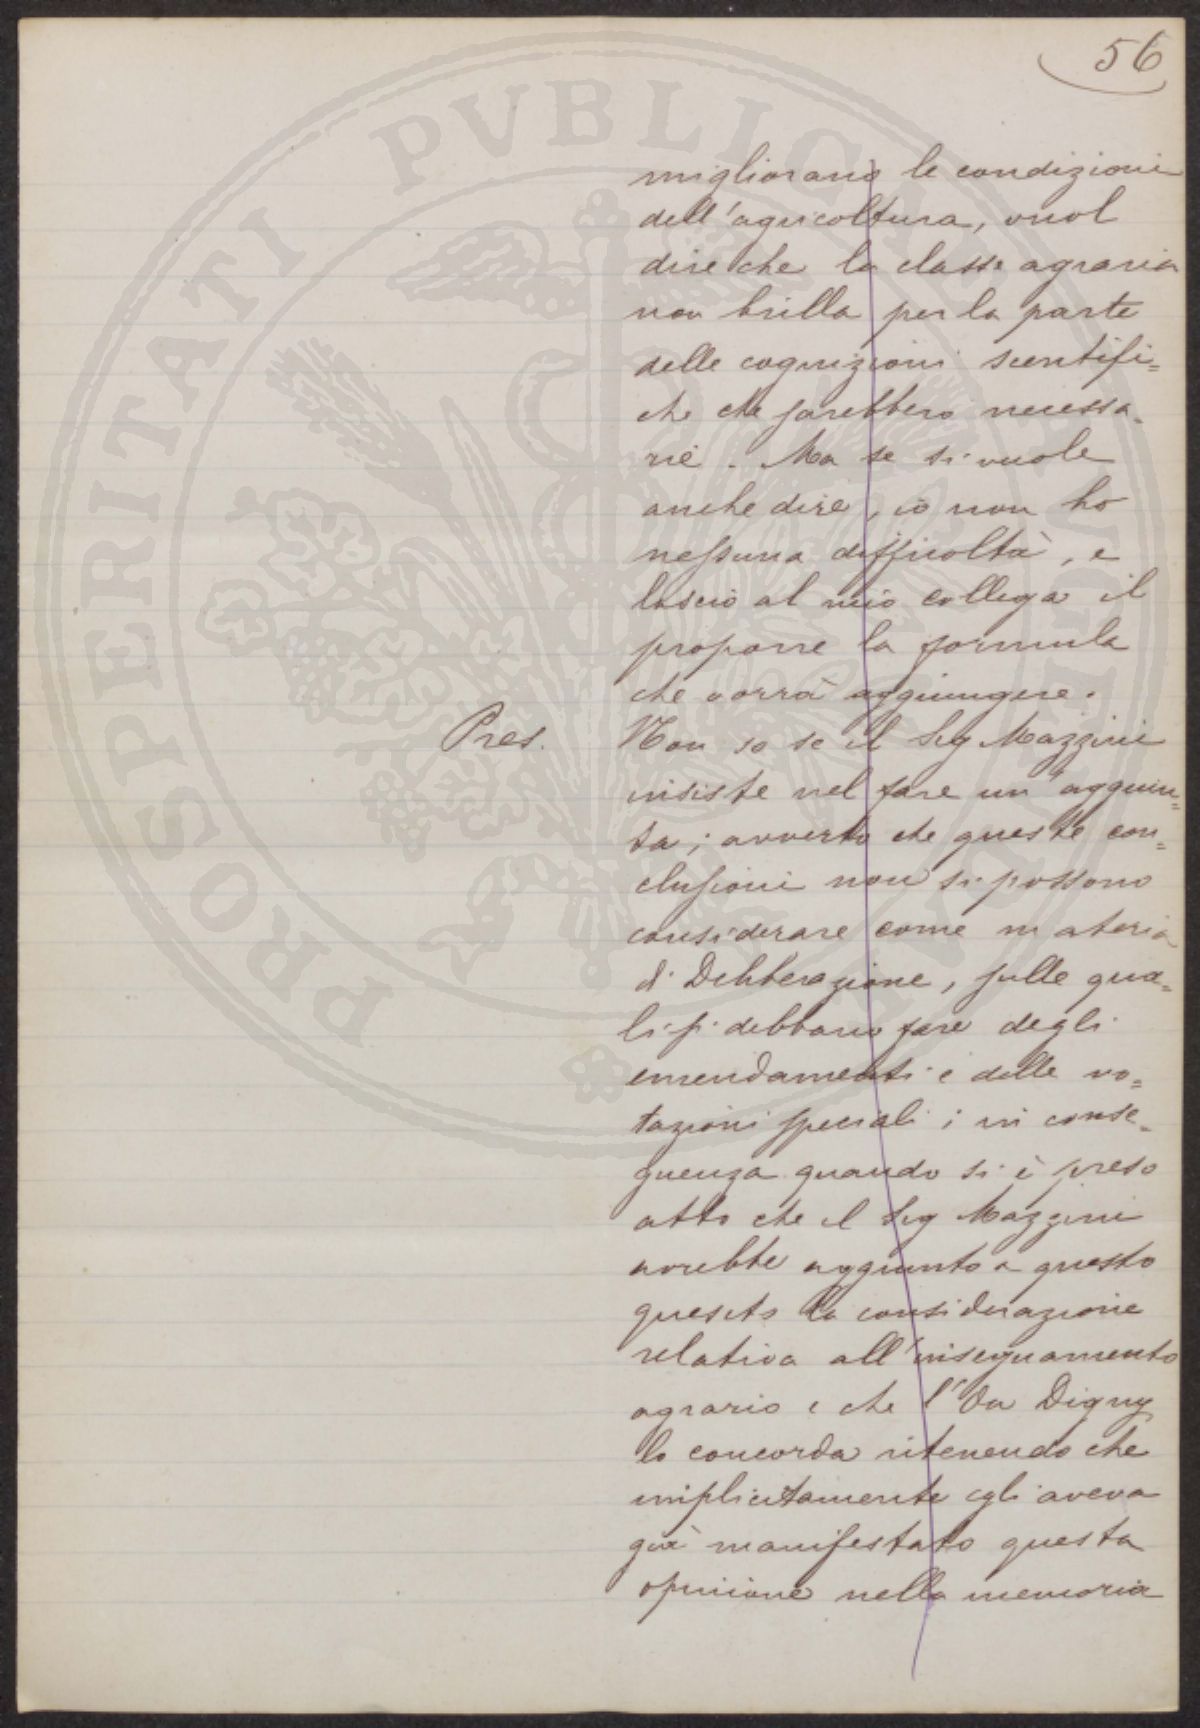 56
migliorano le condizioni
dell'agricoltura, vuol
dire che la classe agraria
non brilla per la parte
delle cognizioni scentifi=
che che sarebbero necessa=
rie. Ma se si vuole
anche dire, io non ho
nessuna difficoltà, e
lascio al mio collega il
proporre la formula
che vorrà aggiungere.
Pres. Non so se il Sig Mazzini
insiste nel fare un'aggiun=
ta; avverto che queste con=
clusioni non si possono
considerare come materia
di Deliberazione, sulle qua=
li si debbano fare degli
emendamenti e delle vo=
tazioni speciali; in conse=
guenza quando si è preso
atto che il Sig Mazzini
avrebbe aggiunto a questo
quesito la considerazione
relativa all'insegnamento
agrario e che l' Digny
lo concorda ritenendo che
implicitamente egli aveva
già manifestato questa
opinione nella memoria
PROSPERITATI PVBLICAE